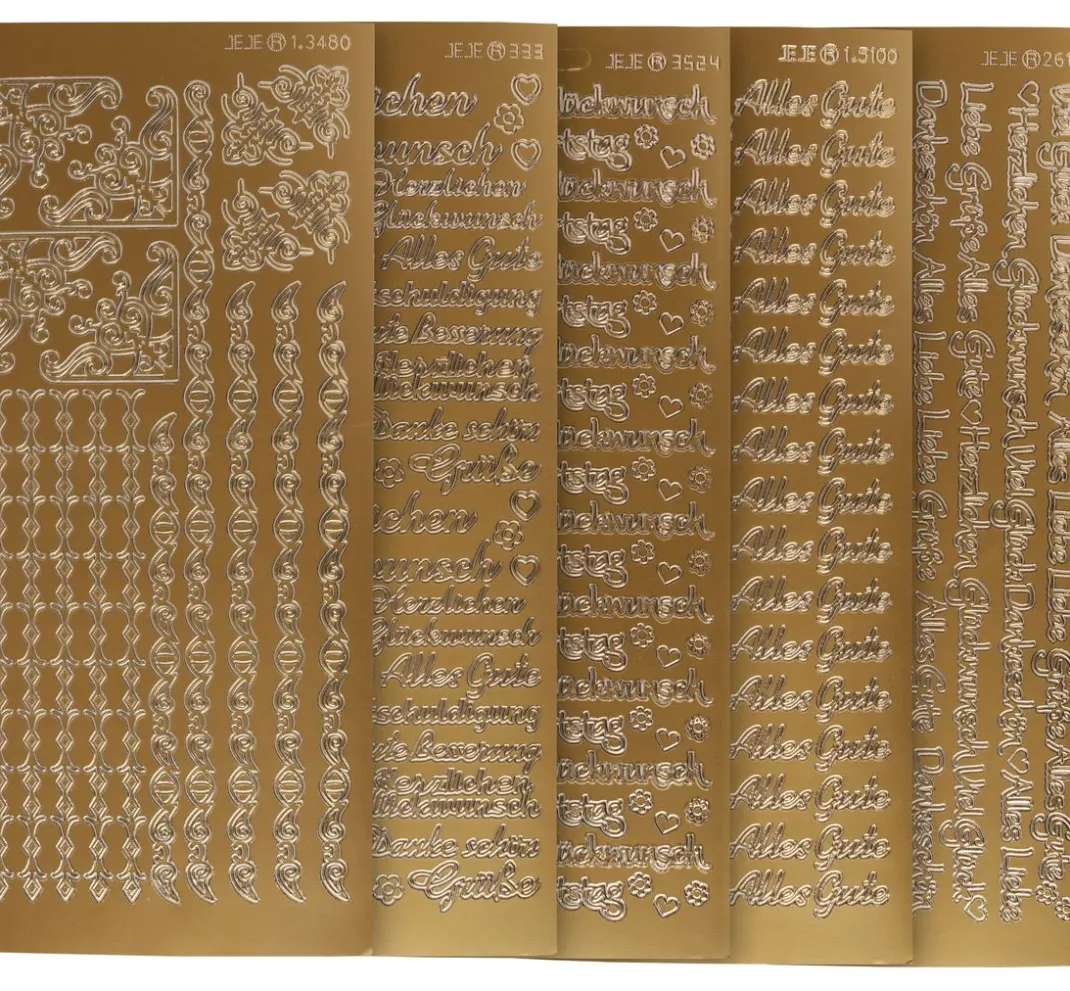 JEJE ® 1.3480
JEJE ® 333
chen
wunsch
Herzlichen
Glückwunsch
Alles Gute
schuldigung
ute Besserung
Herzlichen
lückwunsch
Danke schön
Grüße
chen
wunsch
Herzlichen
Glückwunsch
Alles Gute
schuldigung
ute Besserung
Herzlichen
lückwunsch
Danke schön
Grüße
JEJE ® 3524
lückwunsch
tstag
lückwunsch
tstag
lückwunsch
tstag
lückwunsch
tstag
lückwunsch
tstag
lückwunsch
tstag
lückwunsch
tstag
lückwunsch
tstag
lückwunsch
tstag
lückwunsch
tstag
JEJE ® 1.5100
Alles Gute
Alles Gute
Alles Gute
Alles Gute
Alles Gute
Alles Gute
Alles Gute
Alles Gute
Alles Gute
Alles Gute
Alles Gute
Alles Gute
Alles Gute
Alles Gute
Alles Gute
Alles Gute
Alles Gute
JEJE ® 261
Viel Glück! Dankeschön Alles Liebe Liebe Grüße Alles Gute
Herzlichen Glückwunsch Viel Glück! Dankeschön Alles Liebe
Liebe Grüße Alles Gute Herzlichen Glückwunsch Viel Glück!
Dankeschön Alles Liebe Liebe Grüße Alles Gute Dankeschön